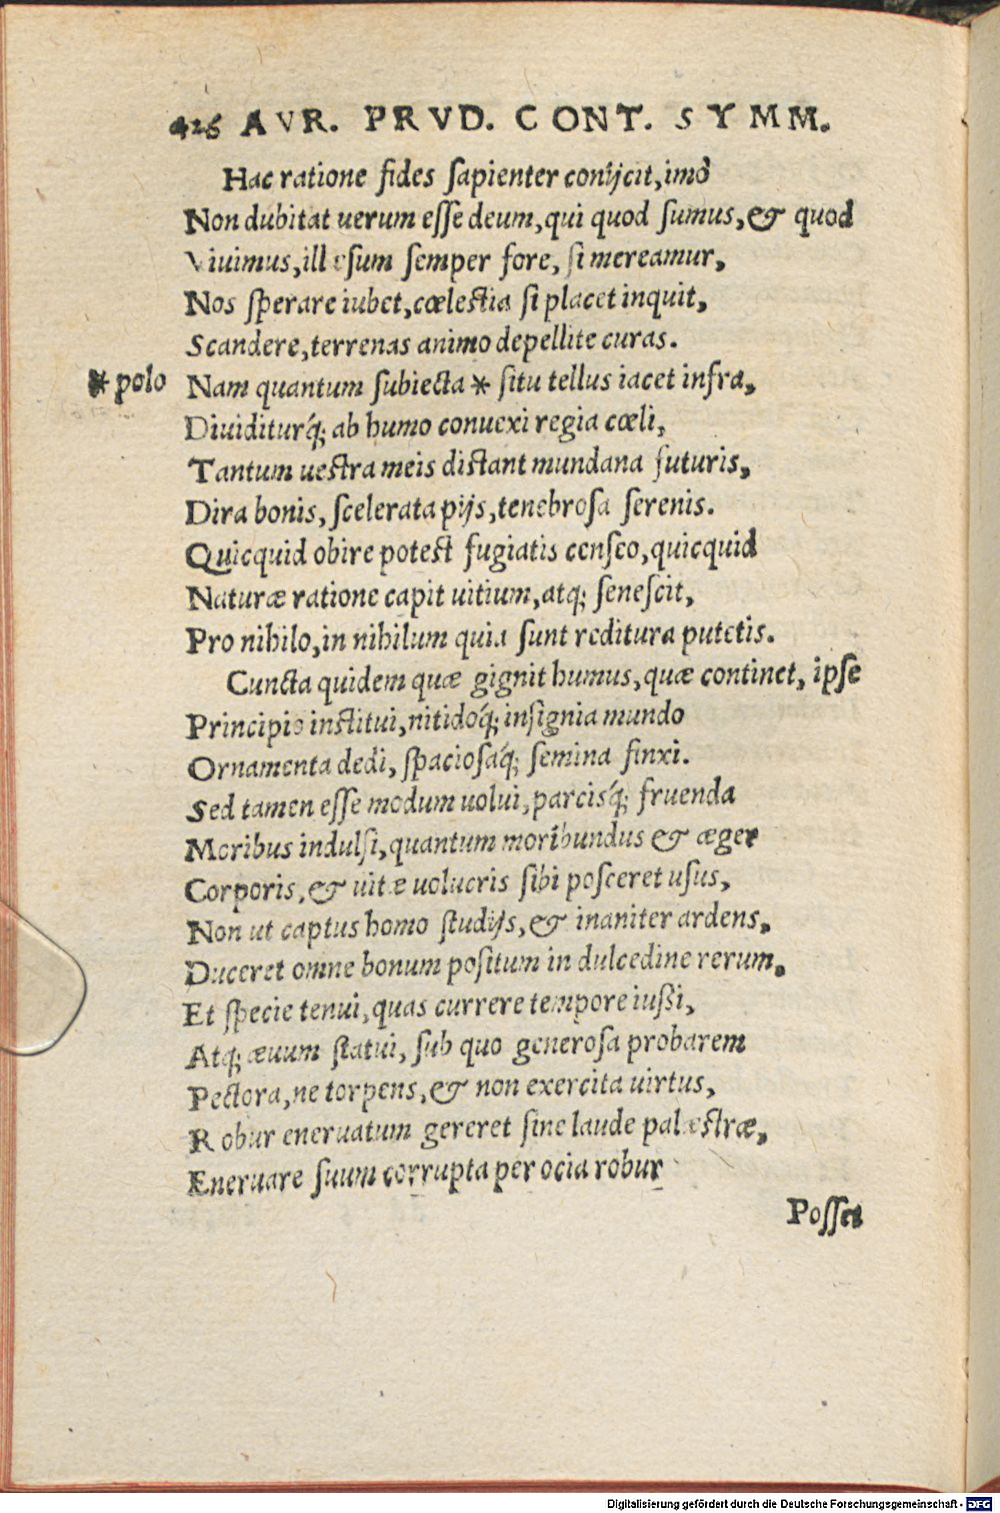 426 AVR. PRVD. CONT. SYMM.
Hac ratione fides sapienter conijcit, imò
Non dubitat uerum esse deum, qui quod sumus, & quod
Viuimus, illæsum semper fore, si mereamur,
Nos sperare iubet, cœlestia si placet inquit,
Scandere, terrenas animo depellite curas.
* polo Nam quantum subiecta * situ tellus iacet infra,
Diuiditurq́; ab humo conuexi regia cœli,
Tantum uestra meis distant mundana futuris,
Dira bonis, scelerata pijs, tenebrosa serenis.
Quicquid obire potest fugiatis censeo, quicquid
Naturæ ratione capit uitium, atq; senescit,
Pro nihilo, in nihilum quia sunt reditura putetis.
Cuncta quidem quæ gignit humus, quæ continet, ipse
Principio institui, nitidoq́; insignia mundo
Ornamenta dedi, spaciosaq́; semina finxi.
Sed tamen esse modum uolui, parcisq́; fruenda
Moribus indulsi, quantum moribundus & æger
Corporis, & uitæ uolucris sibi posceret usus,
Non ut captus homo studijs, & inaniter ardens,
Duceret omne bonum positum in dulcedine rerum,
Et specie tenui, quas currere tempore iussi,
Atq; æuum statui, sub quo generosa probarem
Pectora, ne torpens, & non exercita uirtus,
Robur eneruatum gereret sine laude palæstræ,
Eneruare suum corrupta per ocia robur
Posset
Digitalisierung gefördert durch die Deutsche Forschungsgemeinschaft - DFG